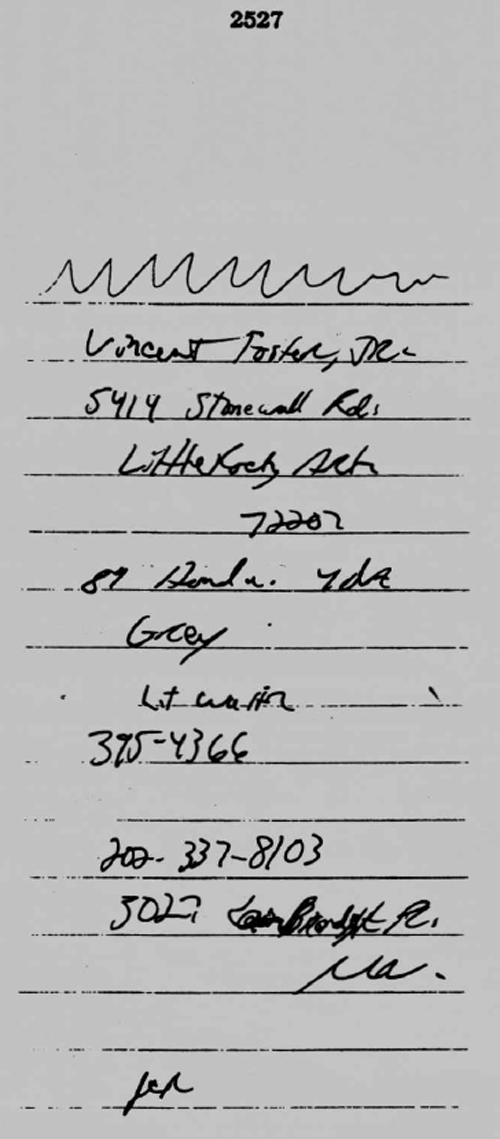 2527
Vincent Foster, JR.
5414 Stonewall Rd.
Little Rock, Ark
72207
89 Honda. 4dr
Grey
Lt
395-4366
202-337-8103
3027